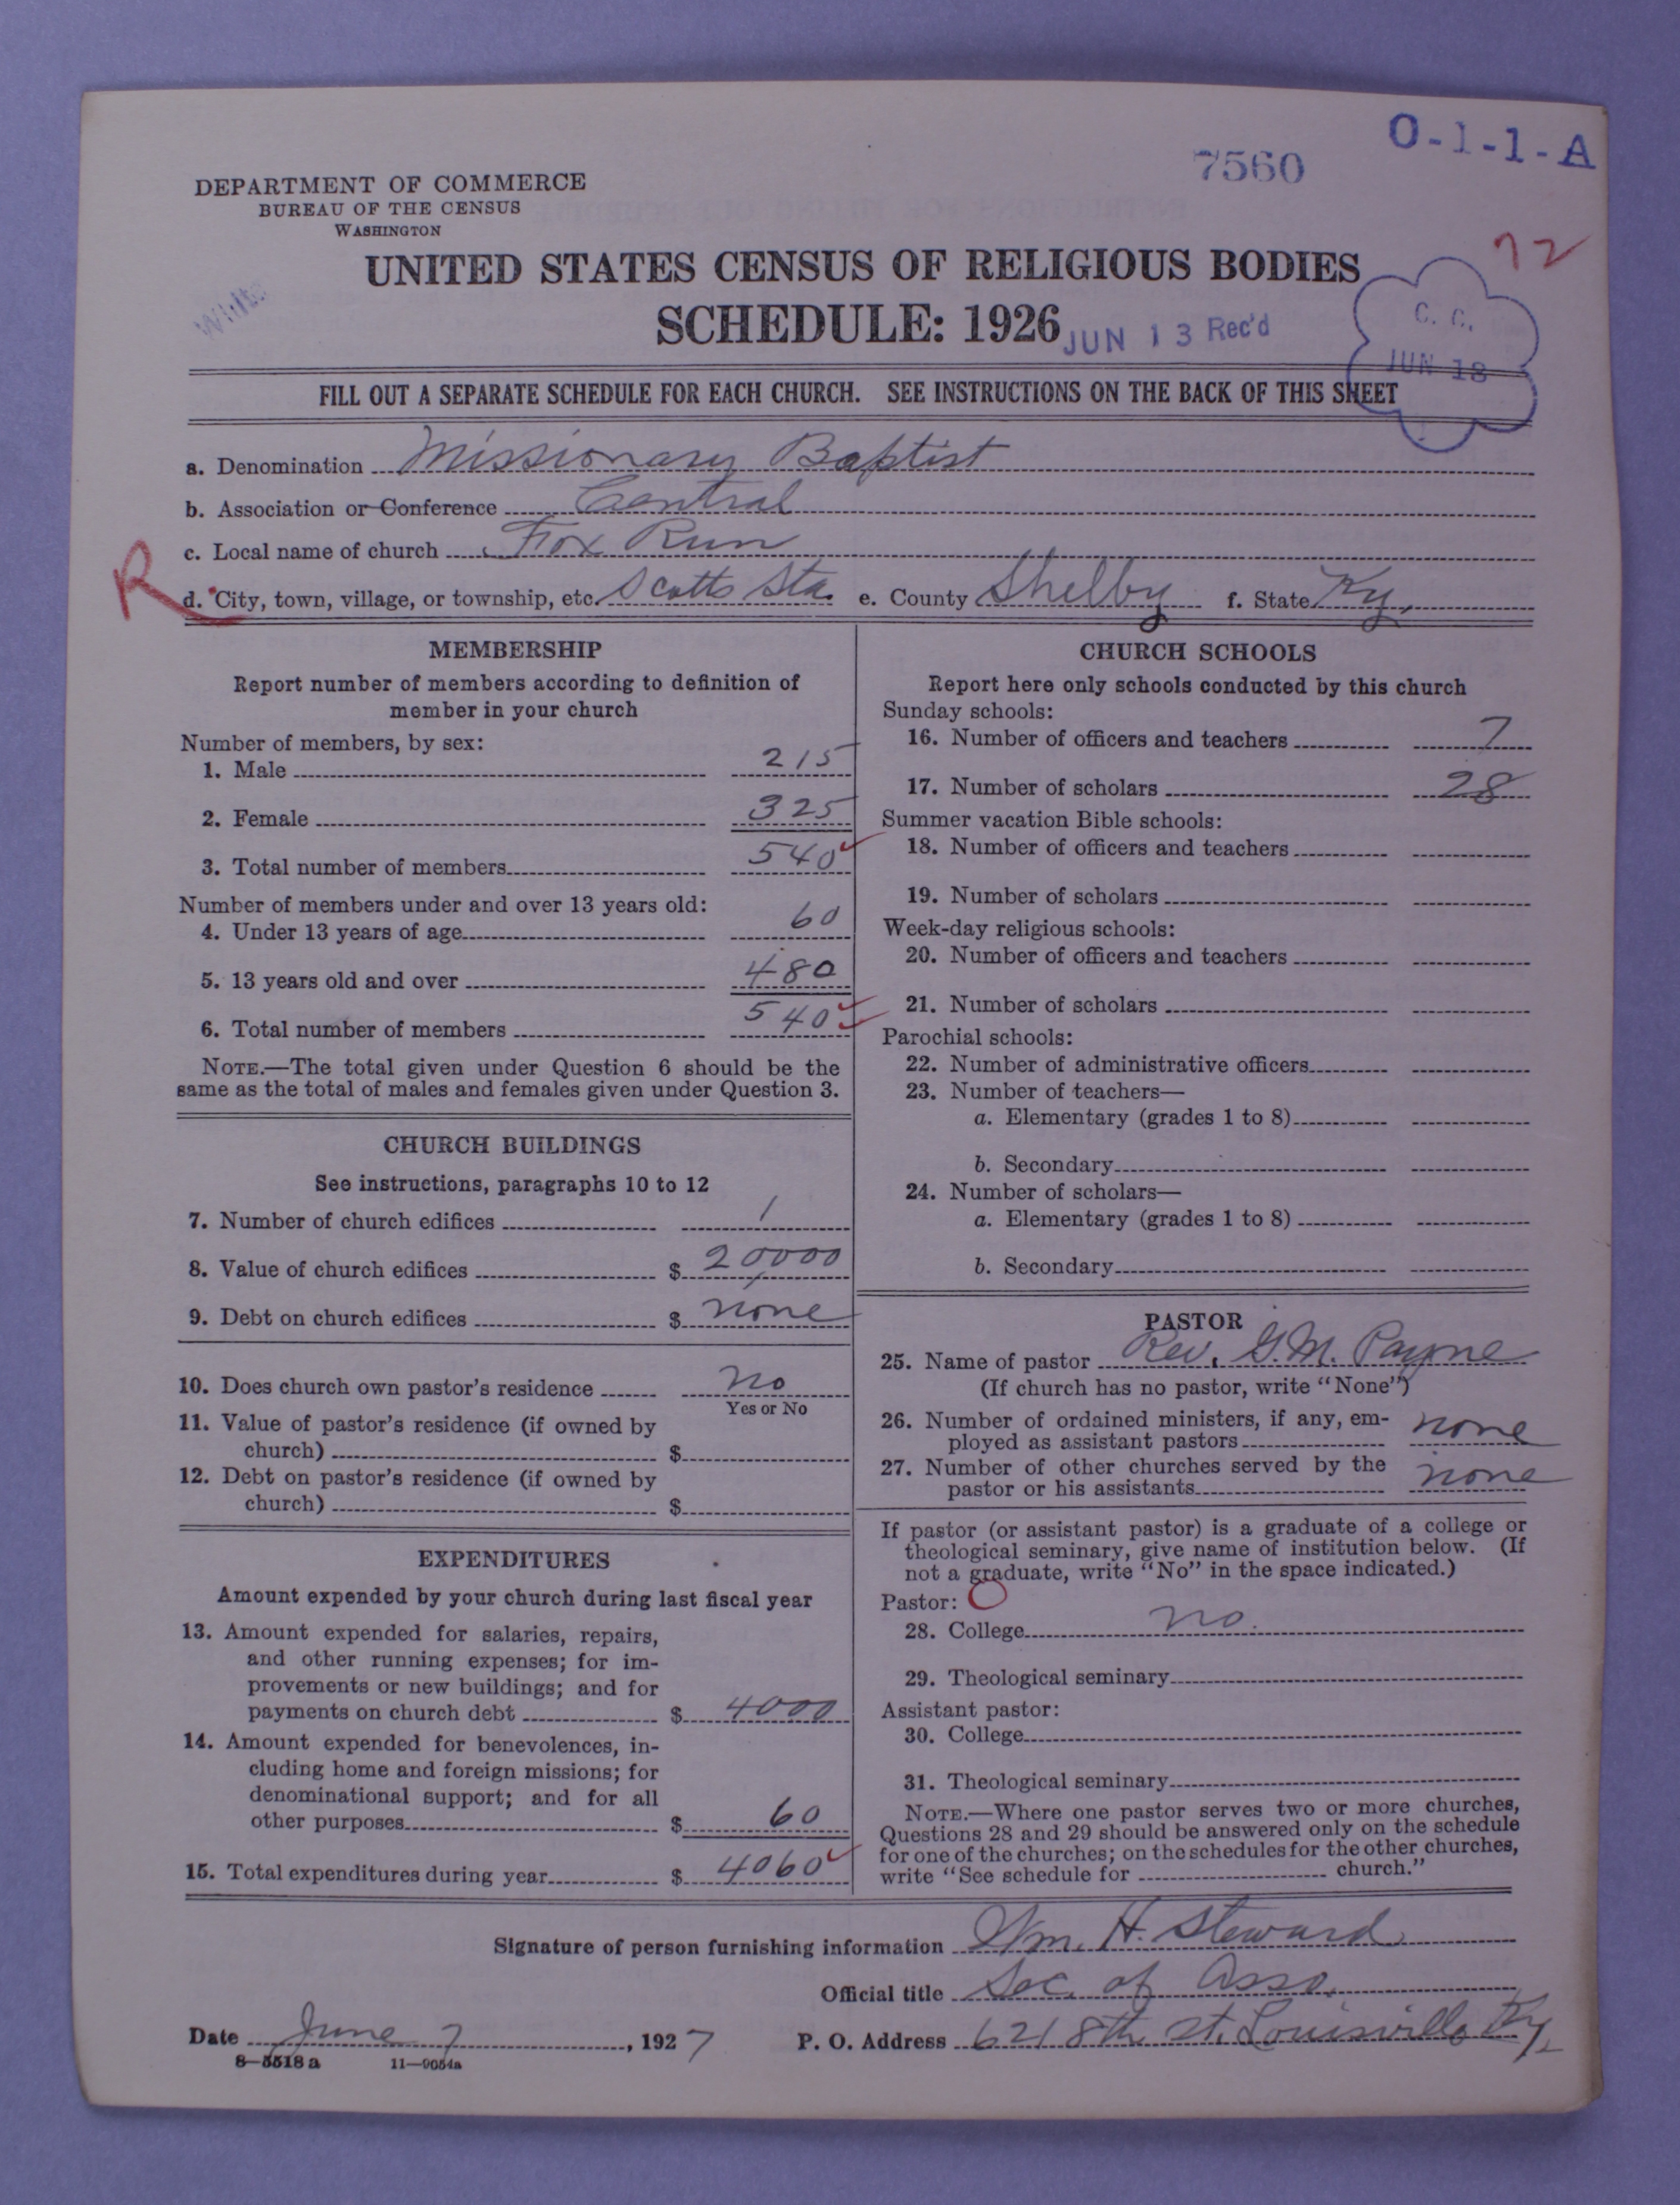 O-1-1-A
7560
DEPARTMENT OF COMMERCE
BUREAU OF THE CENSUS
WASHINGTON
72
UNITED STATES CENSUS OF RELIGIOUS BODIES
White
SCHEDULE: 1926
JUN 13 Rec'd
C. C.
JUN 13
FILL OUT A SEPARATE SCHEDULE FOR EACH CHURCH. SEE INSTRUCTIONS ON THE BACK OF THIS SHEET
a. Denomination Missionary Baptist
b. Association or Conference Central
c. Local name of church Fox Run
R
d. City, town, village, or township, etc. Scotts Sta. e. County Shelby f. State Ky.
MEMBERSHIP
Report number of members according to definition of
member in your church
Number of members, by sex:
1. Male 215
2. Female 325
3. Total number of members 540
Number of members under and over 13 years old:
4. Under 13 years of age 60
5. 13 years old and over 480
6. Total number of members 540
NOTE.—The total given under Question 6 should be the
same as the total of males and females given under Question 3.
CHURCH BUILDINGS
See instructions, paragraphs 10 to 12
7. Number of church edifices 1
8. Value of church edifices $ 20000
9. Debt on church edifices $ none
10. Does church own pastor's residence no
Yes or No
11. Value of pastor's residence (if owned by
church) $
12. Debt on pastor's residence (if owned by
church) $
EXPENDITURES
Amount expended by your church during last fiscal year
13. Amount expended for salaries, repairs,
and other running expenses; for im-
provements or new buildings; and for
payments on church debt $ 4000
14. Amount expended for benevolences, in-
cluding home and foreign missions; for
denominational support; and for all
other purposes $ 60
15. Total expenditures during year $ 4060
CHURCH SCHOOLS
Report here only schools conducted by this church
Sunday schools:
16. Number of officers and teachers 7
17. Number of scholars 28
Summer vacation Bible schools:
18. Number of officers and teachers
19. Number of scholars
Week-day religious schools:
20. Number of officers and teachers
21. Number of scholars
Parochial schools:
22. Number of administrative officers
23. Number of teachers—
a. Elementary (grades 1 to 8)
b. Secondary
24. Number of scholars—
a. Elementary (grades 1 to 8)
b. Secondary
PASTOR
25. Name of pastor Rev. G.M. Payne
(If church has no pastor, write "None")
26. Number of ordained ministers, if any, em-
ployed as assistant pastors none
27. Number of other churches served by the
pastor or his assistants none
If pastor (or assistant pastor) is a graduate of a college or
theological seminary, give name of institution below. (If
not a graduate, write "No" in the space indicated.)
Pastor: O
28. College no.
29. Theological seminary
Assistant pastor:
30. College
31. Theological seminary
NOTE.—Where one pastor serves two or more churches,
Questions 28 and 29 should be answered only on the schedule
for one of the churches; on the schedules for the other churches,
write "See schedule for church."
Signature of person furnishing information Wm. H. Steward
Official title Sec. of Asso.
Date June 7, 1927 P. O. Address 621 8th st. Louisville Ky.
8—5518 a 11—9054a